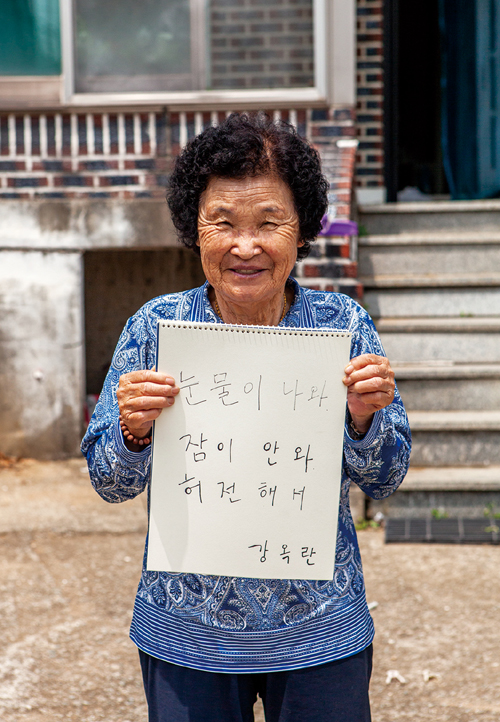 눈물이 나와
잠이 안와
허전해서
강옥란